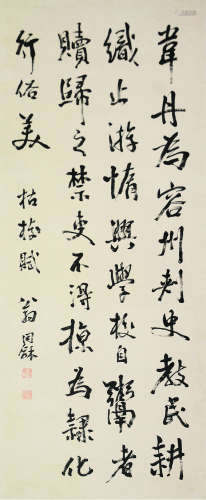 韋丹為容州刺史教民耕
織止游惰興學校自鬻者
贖歸之禁吏不得掠為隸化
行俗美
翁同龢